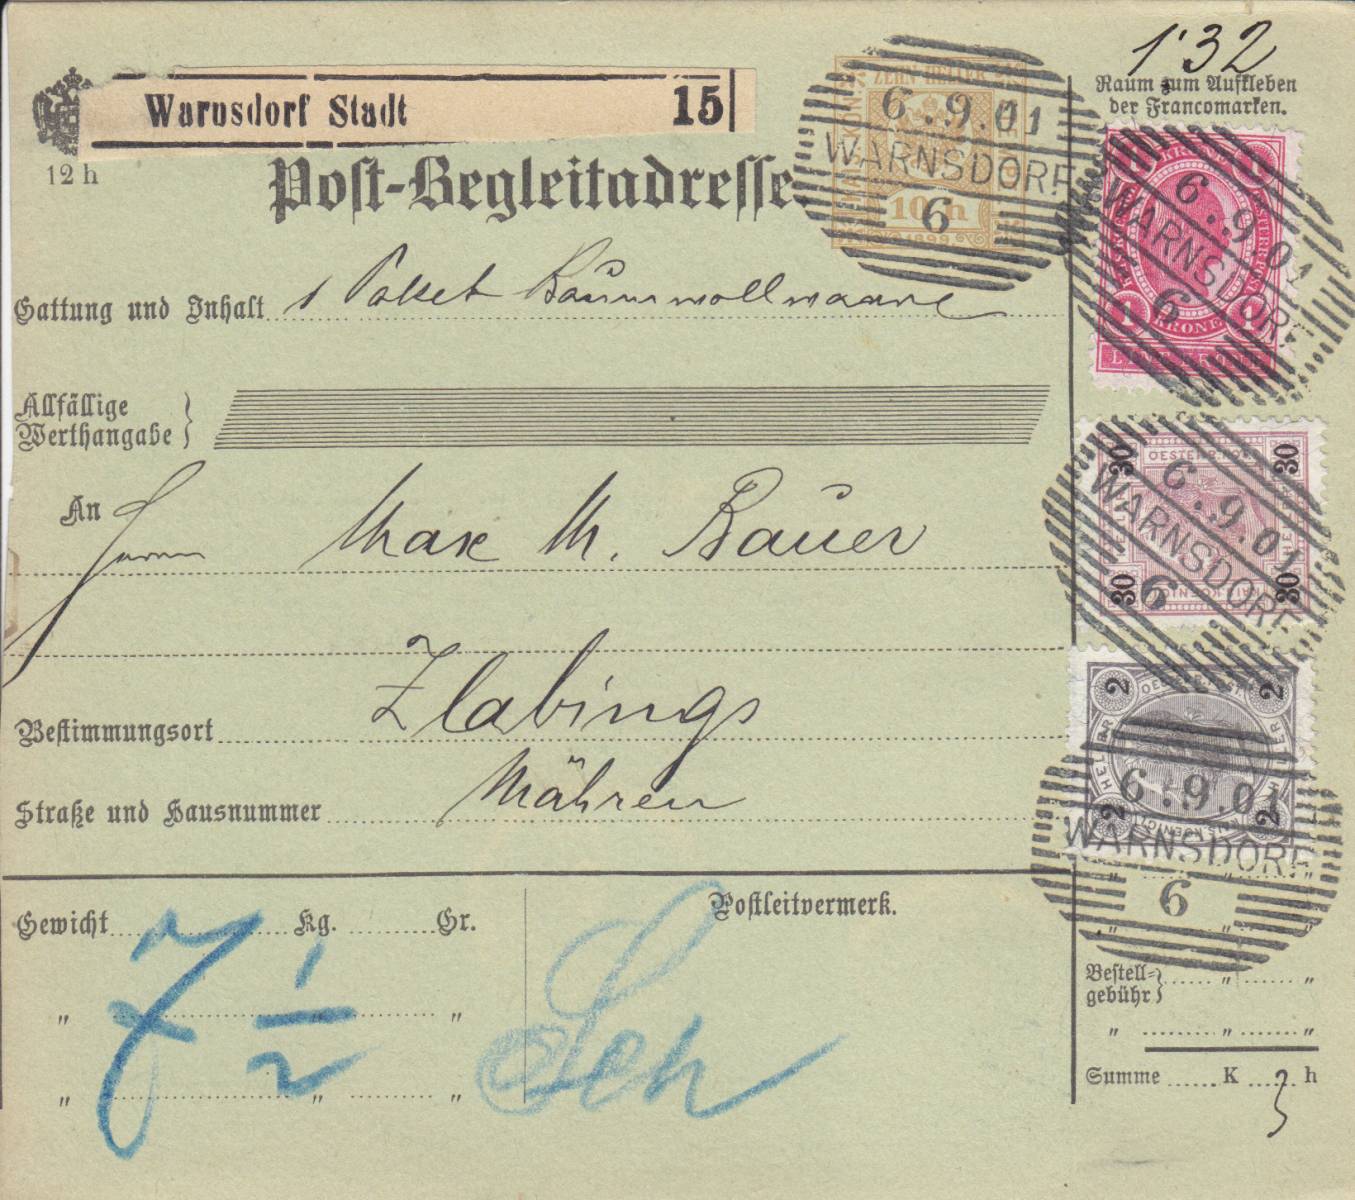 1·32
Warnsdorf Stadt 15
12 h
Post-Begleitadresse.
ZEHN HELLER
10 h
1899
6.9.01
WARNSDORF
6
Raum zum Aufkleben
der Francomarken.
Gattung und Inhalt 1 Paket Baumwollwaare
Allfällige
Werthangabe }
An Herrn Max M. Bauer
Bestimmungsort Zlabings
Straße und Hausnummer Mähren
KRONE
1 1
KRONE
6.9.01
WARNSDORF
6
30 OESTERR. POST 30
30 30
6.9.01
WARNSDORF
6
2 2
HELLER
2 2
6.9.01
WARNSDORF
6
Gewicht Kg. Gr.
7 1/2
" "
" " "
Postleitvermerk.
Bestell-
gebühr } " "
" " "
Summe K h